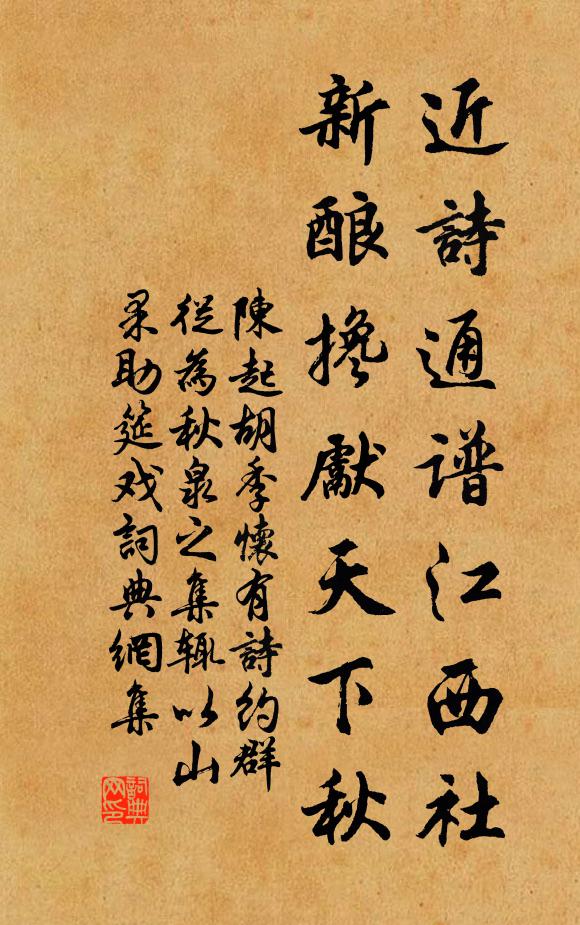 近詩通谱江西社
新酿搀獻天下秋
陳起胡季懷有詩約群
從為秋泉之集辄以山
果助筵戏詞典網集
詞典网印